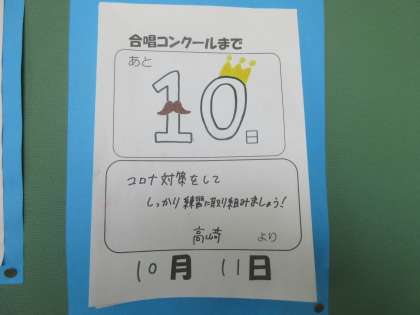 合唱コンクールまで
あと
10日
コロナ対策をして
しっかり練習に取り組みましょう!
高崎 より
10月 11日